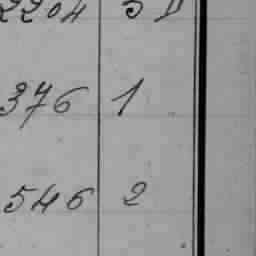 2204 5
376 1
546 2